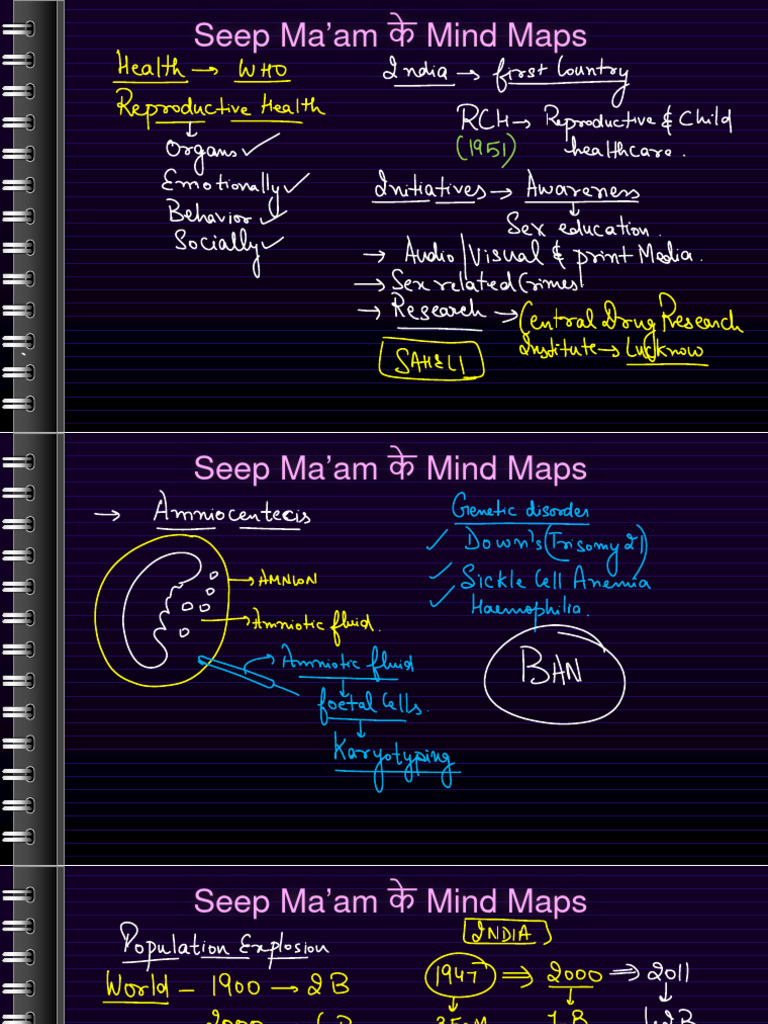 Seep Ma'am के Mind Maps
Health → WHO
Reproductive Health
Organs ✓
Emotionally ✓
Behavior ✓
Socially ✓
India → first Country
RCH → Reproductive & Child
(1951) healthcare.
Initiatives → Awareness
Sex education.
→ Audio/Visual & print Media.
→ Sex related Crimes
→ Research → Central Drug Research
Institute → Lucknow
SAHELI
Seep Ma'am के Mind Maps
→ Amniocentecis
AMNION
Amniotic fluid.
Amniotic fluid
foetal Cells.
Karyotyping
Genetic disorder
✓ Down's (Trisomy 21)
✓ Sickle Cell Anemia
✓ Haemophilia.
BAN
Seep Ma'am के Mind Maps
Population Explosion
World – 1900 → 2B
2000
INDIA
1947 ⇒ 2000 ⇒ 2011
1B 1.2B